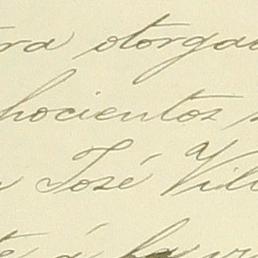 ra otorgad
hocientos s
n José Vill
te á la vi